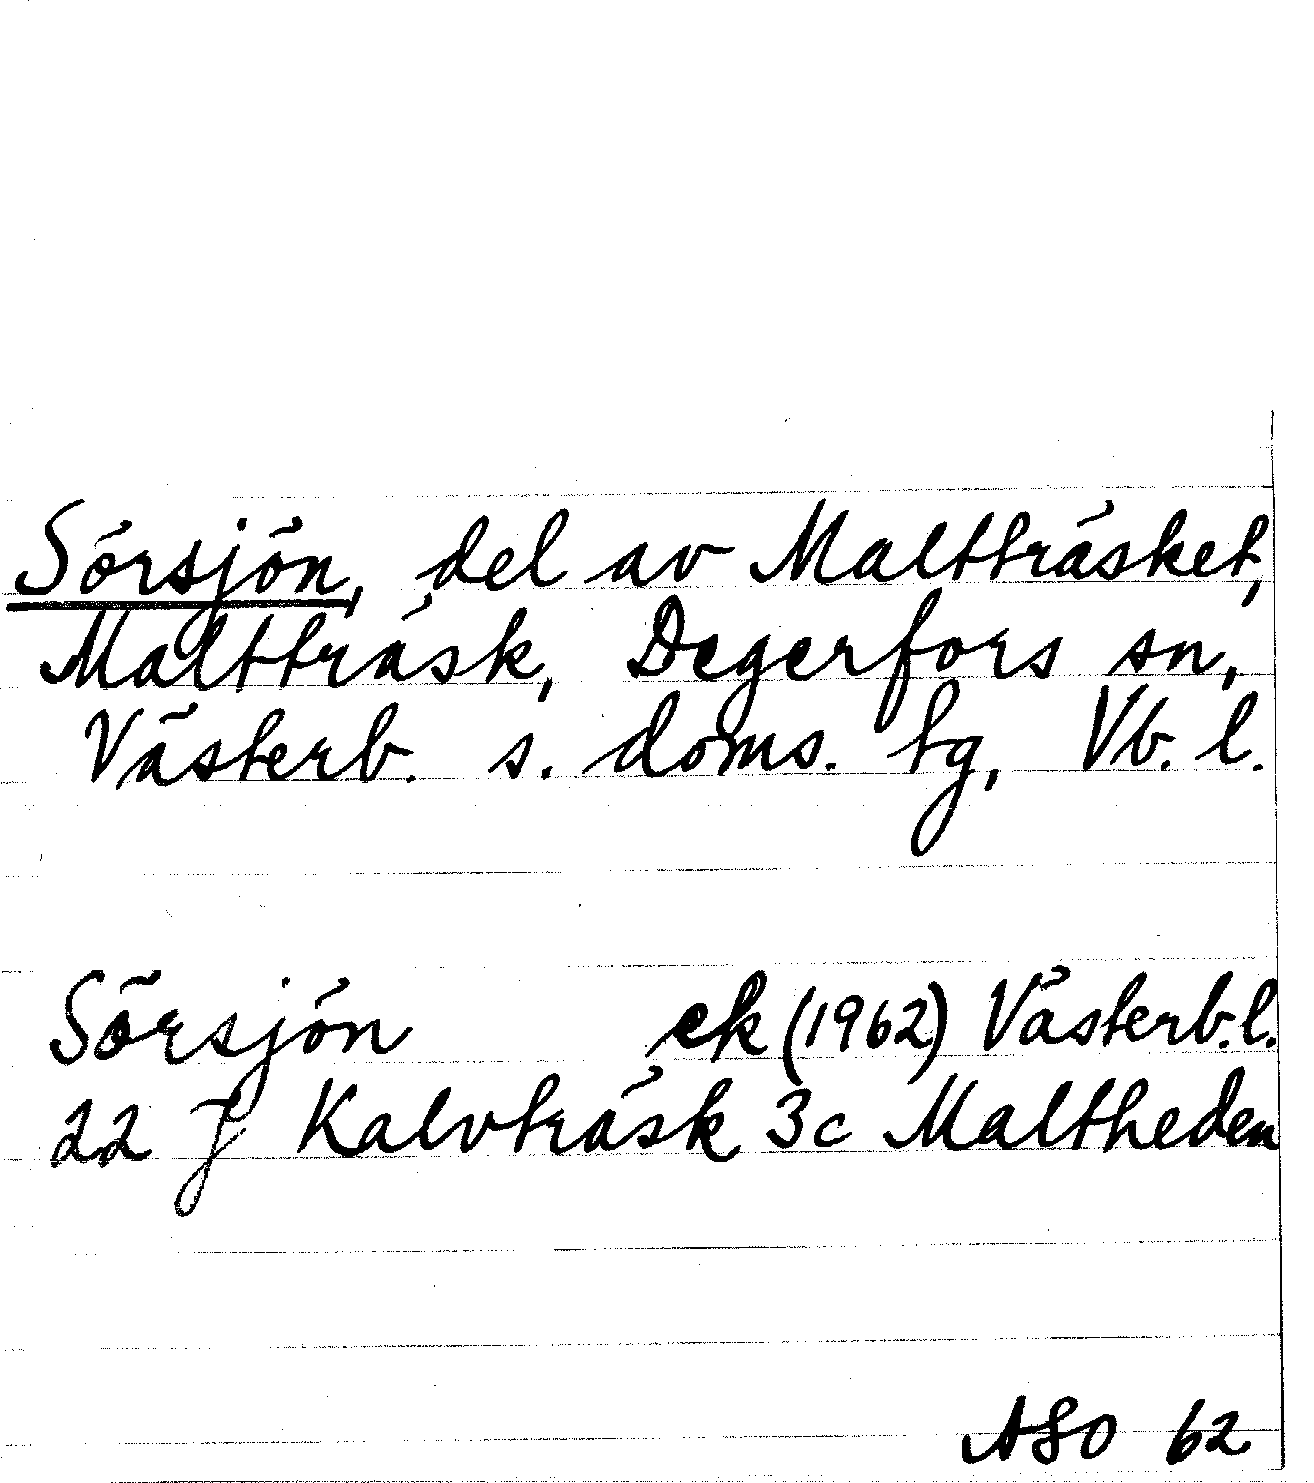 Sörsjön, del av Maltträsket,
Maltträsk, Degerfors sn,
Västerb. s. doms. tg, Vb. l.
Sörsjön ek (1962) Västerb. l.
22 J Kalvträsk 3c Maltheden
ASO 62